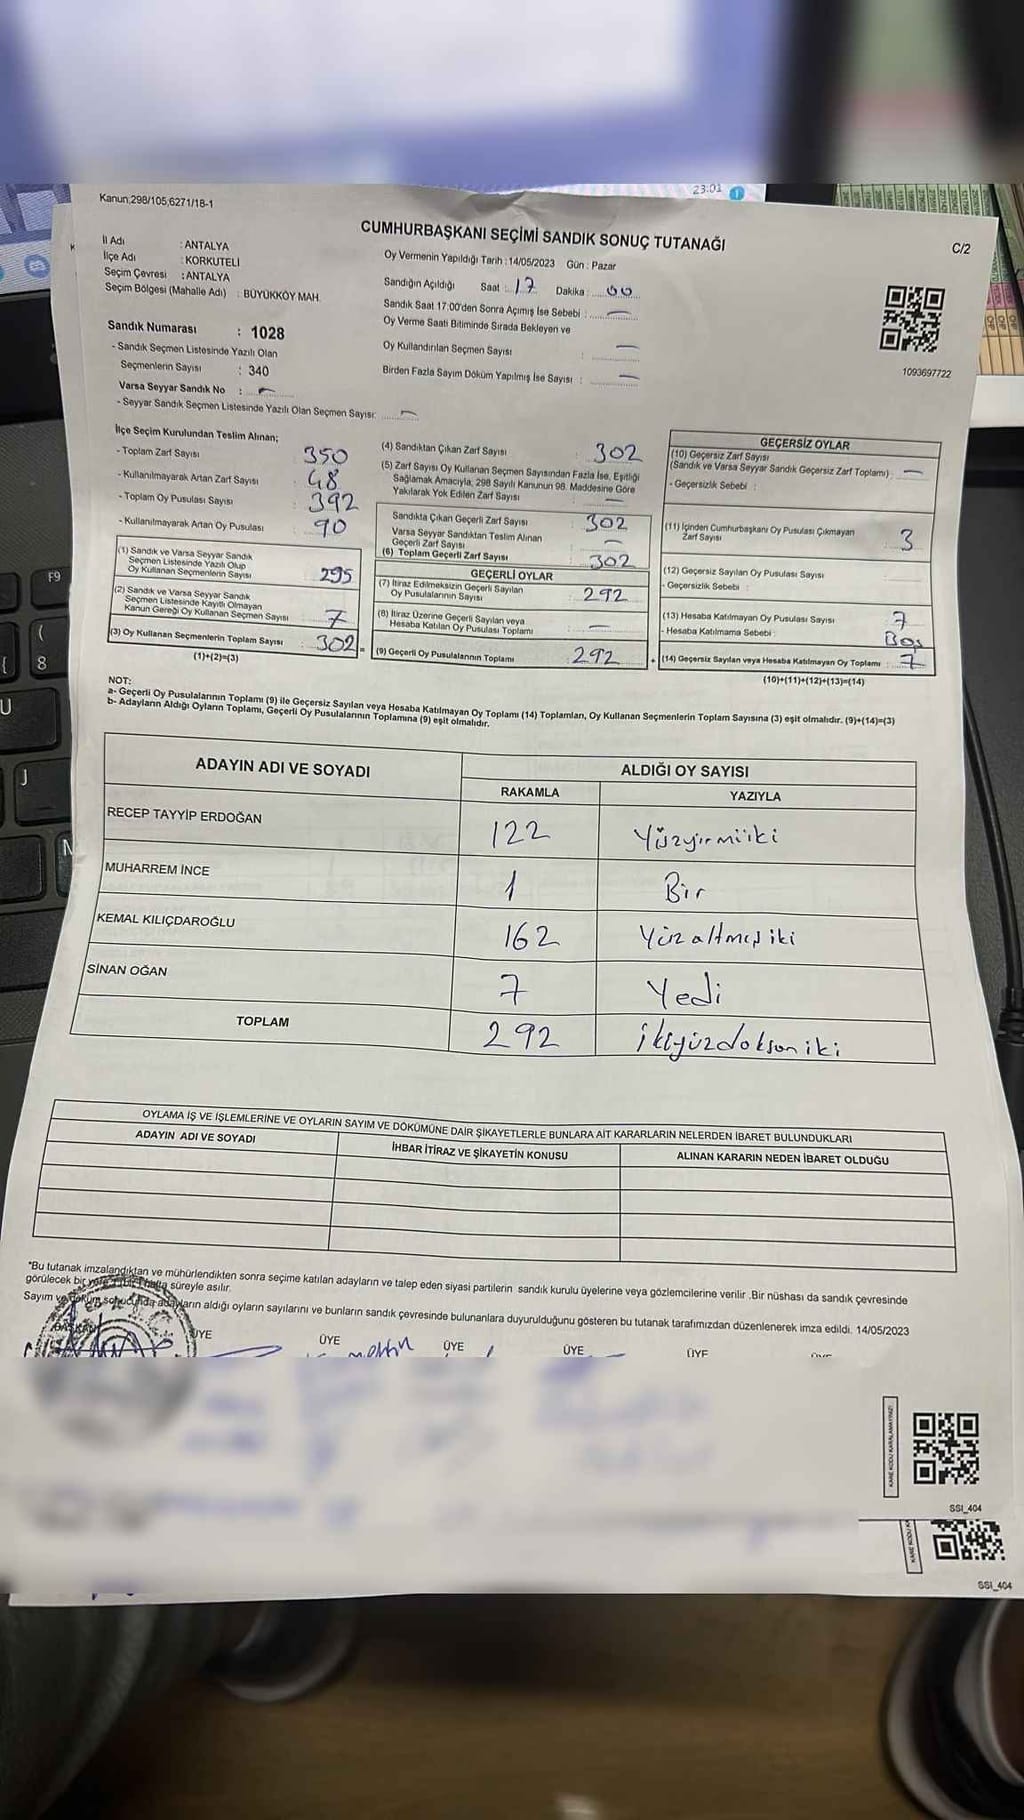 23:01
Kanun;298/105,6271/18-1
CUMHURBAŞKANI SEÇİMİ SANDIK SONUÇ TUTANAĞI
C/2
İl Adı : ANTALYA
İlçe Adı : KORKUTELİ
Seçim Çevresi : ANTALYA
Seçim Bölgesi (Mahalle Adı) : BÜYÜKKÖY MAH.
Oy Vermenin Yapıldığı Tarih :14/05/2023 Gün : Pazar
Sandığın Açıldığı Saat : 17 Dakika : 00
Sandık Saat 17:00'den Sonra Açımış İse Sebebi : —
Oy Verme Saati Bitiminde Sırada Bekleyen ve
Oy Kullandırılan Seçmen Sayısı : —
Birden Fazla Sayım Döküm Yapılmış İse Sayısı : —
1093697722
Sandık Numarası : 1028
- Sandık Seçmen Listesinde Yazılı Olan
Seçmenlerin Sayısı : 340
Varsa Seyyar Sandık No : —
- Seyyar Sandık Seçmen Listesinde Yazılı Olan Seçmen Sayısı: —
İlçe Seçim Kurulundan Teslim Alınan;
- Toplam Zarf Sayısı : 350
- Kullanılmayarak Artan Zarf Sayısı : 48
- Toplam Oy Pusulası Sayısı : 392
- Kullanılmayarak Artan Oy Pusulası : 90
(1) Sandık ve Varsa Seyyar Sandık
Seçmen Listesinde Yazılı Olup
Oy Kullanan Seçmenlerin Sayısı : 295
(2) Sandık ve Varsa Seyyar Sandık
Seçmen Listesinde Kayıtlı Olmayan
Kanun Gereği Oy Kullanan Seçmen Sayısı : 7
(3) Oy Kullanan Seçmenlerin Toplam Sayısı : 302 =
(1)+(2)=(3)
(4) Sandıktan Çıkan Zarf Sayısı : 302
(5) Zarf Sayısı Oy Kullanan Seçmen Sayısından Fazla İse, Eşitliği
Sağlamak Amacıyla, 298 Sayılı Kanunun 98. Maddesine Göre
Yakılarak Yok Edilen Zarf Sayısı : —
Sandıkta Çıkan Geçerli Zarf Sayısı : 302
Varsa Seyyar Sandıktan Teslim Alınan
Geçerli Zarf Sayısı : —
(6) Toplam Geçerli Zarf Sayısı : 302
GEÇERLİ OYLAR
(7) İtiraz Edilmeksizin Geçerli Sayılan
Oy Pusulalarının Sayısı : 292
(8) İtiraz Üzerine Geçerli Sayılan veya
Hesaba Katılan Oy Pusulası Toplamı : —
(9) Geçerli Oy Pusulalarının Toplamı : 292 +
GEÇERSİZ OYLAR
(10) Geçersiz Zarf Sayısı
(Sandık ve Varsa Seyyar Sandık Geçersiz Zarf Toplamı) : —
- Geçersizlik Sebebi :
(11) İçinden Cumhurbaşkanı Oy Pusulası Çıkmayan
Zarf Sayısı : 3
(12) Geçersiz Sayılan Oy Pusulası Sayısı :
- Geçersizlik Sebebi :
(13) Hesaba Katılmayan Oy Pusulası Sayısı : 7
- Hesaba Katılmama Sebebi : Boş
(14) Geçersiz Sayılan veya Hesaba Katılmayan Oy Toplamı : 7
(10)+(11)+(12)+(13)=(14)
NOT:
a- Geçerli Oy Pusulalarının Toplamı (9) ile Geçersiz Sayılan veya Hesaba Katılmayan Oy Toplamı (14) Toplamları, Oy Kullanan Seçmenlerin Toplam Sayısına (3) eşit olmalıdır. (9)+(14)=(3)
b- Adayların Aldığı Oyların Toplamı, Geçerli Oy Pusulalarının Toplamına (9) eşit olmalıdır.
ADAYIN ADI VE SOYADI
ALDIĞI OY SAYISI
RAKAMLA YAZIYLA
RECEP TAYYİP ERDOĞAN 122 Yüzyirmiiki
MUHARREM İNCE 1 Bir
KEMAL KILIÇDAROĞLU 162 Yüzaltmışiki
SİNAN OĞAN 7 Yedi
TOPLAM 292 ikiyüzdoksaniki
OYLAMA İŞ VE İŞLEMLERİNE VE OYLARIN SAYIM VE DÖKÜMÜNE DAİR ŞİKAYETLERLE BUNLARA AİT KARARLARIN NELERDEN İBARET BULUNDUKLARI
ADAYIN ADI VE SOYADI İHBAR İTİRAZ VE ŞİKAYETİN KONUSU ALINAN KARARIN NEDEN İBARET OLDUĞU
*Bu tutanak imzalandıktan ve mühürlendikten sonra seçime katılan adayların ve talep eden siyasi partilerin sandık kurulu üyelerine veya gözlemcilerine verilir .Bir nüshası da sandık çevresinde
görülecek bir yere 1 bir hafta süreyle asılır.
Sayım ve döküm sonucunda adayların aldığı oyların sayılarını ve bunların sandık çevresinde bulunanlara duyurulduğunu gösteren bu tutanak tarafımızdan düzenlenerek imza edildi. 14/05/2023
BAŞKAN ÜYE ÜYE ÜYE ÜYE ÜYE ÜYE
KARE KODU KARALAMAYINIZ!
SSI_404
KARE KODU
SSI_404
F9
8
U
J